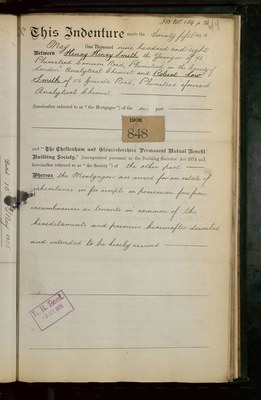 This Indenture made the Twenty fifth day of
May One Thousand nine hundred and eight
Between Henry Smith the Younger of 98
Plumstead Common Road, Plumstead in the County of
London Analytical Chemist and Robert
Smith of Road, Plumstead aforesaid
Analytical Chemist
(hereinafter referred to as "the Mortgagors") of the one part
1908
848
and "The Cheltenham and Gloucestershire Permanent Mutual Benefit
Building Society," (incorporated pursuant to the Building Societies' Act 1874 and
hereinafter referred to as "the Society") of the other part
Whereas the Mortgagors are seised for an estate of
inheritance in fee simple in possession free from
incumbrances as tenants in common of the
hereditaments and premises hereinafter described
and intended to be hereby assured